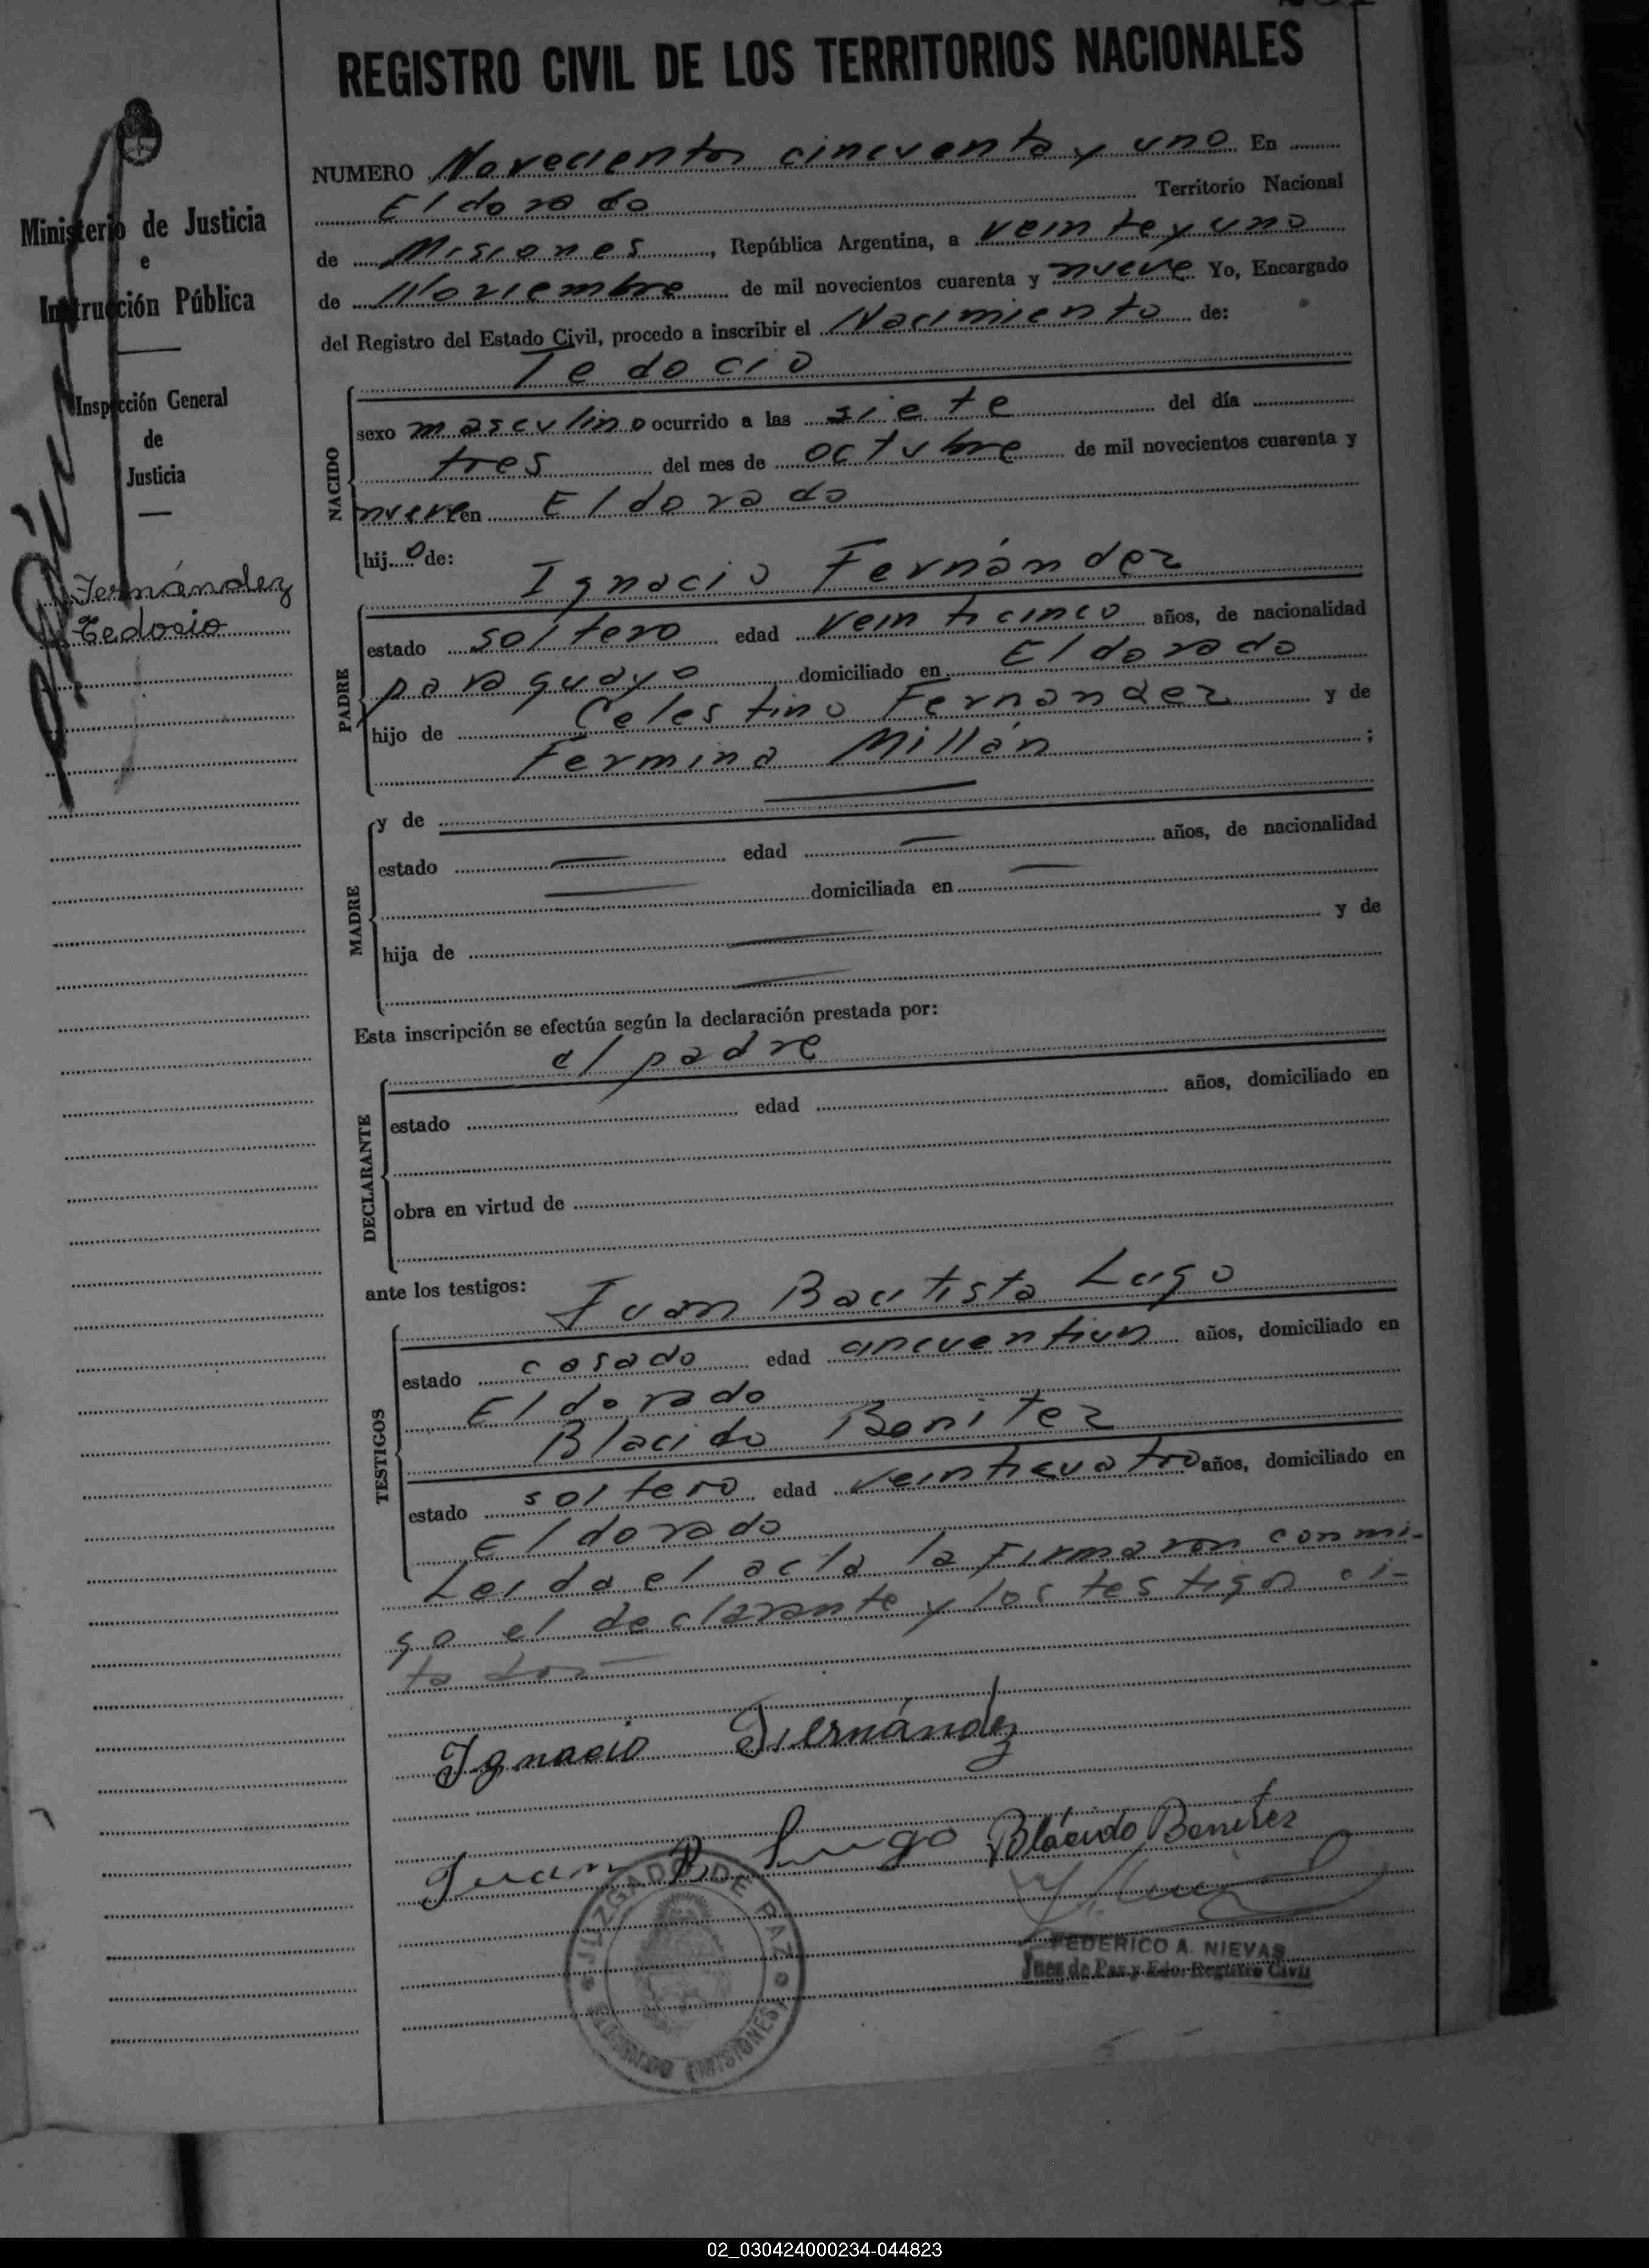 REGISTRO CIVIL DE LOS TERRITORIOS NACIONALES
Ministerio de Justicia
e
Instrucción Pública
Inspección General
de
Justicia
Fernández
Tedocio
NUMERO Novecientos cincuenta y uno En
Eldorado Territorio Nacional
de Misiones, República Argentina, a veinte y uno
de Noviembre de mil novecientos cuarenta y nueve Yo, Encargado
del Registro del Estado Civil, procedo a inscribir el Nacimiento de:
Tedocio
NACIDO
sexo masculino ocurrido a las siete del día
tres del mes de octubre de mil novecientos cuarenta y
nueve en Eldorado
hij o de:
Ignacio Fernández
PADRE
estado soltero edad veinticinco años, de nacionalidad
paraguayo domiciliado en Eldorado
hijo de Celestino Fernandez y de
Fermina Millán ;
MADRE
y de
estado edad años, de nacionalidad
domiciliada en
hija de y de
Esta inscripción se efectúa según la declaración prestada por:
el padre
DECLARANTE
estado edad años, domiciliado en
obra en virtud de
ante los testigos:
Juan Bautista Lugo
TESTIGOS
estado casado edad cincuentiun años, domiciliado en
Eldorado
Blacido Benitez
estado soltero edad veinticuatro años, domiciliado en
Eldorado
Leida el acta la firmaron conmi-
go el declarante y los testigos ci-
tados
Ignacio Fiernández
Juan B. Lugo Blácido Benitez
JUZGADO DE PAZ
ELDORADO (MISIONES)
FEDERICO A. NIEVAS
Juez de Paz y Edo. Registro Civil
02_030424000234-044823